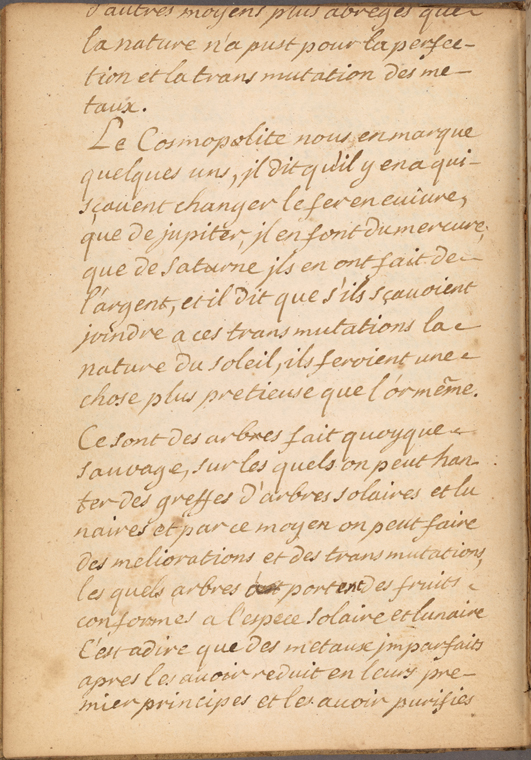 d'autres moyens plus abregés que
la nature n'a pust pour la perfec-
tion et la transmutation des me-
taux.
Le Cosmopolite nous en marque
quelques uns, jl dit qu'il y en a qui
sçauent changer le fer en cuiure,
que de jupiter, jl en font du mercure,
que de saturne jls en ont fait de
l'argent, et il dit que s'ils sçauoient
joindre a ces transmutations la
nature du soleil, ils feroient une
chose plus pretieuse que l'or même.
Ce sont des arbres fait quoyque
sauvage, sur les quels on peut han
ter des greffes d'arbres solaires et lu
naires et par ce moyen on peut faire
des meliorations et des transmutations,
les quels arbres portent des fruits
conformes a l'espece solaire et lunaire
C'est a dire que des metaux jmparfaits
apres les auoir reduit en leurs pre-
mier principes et les auoir purifiés